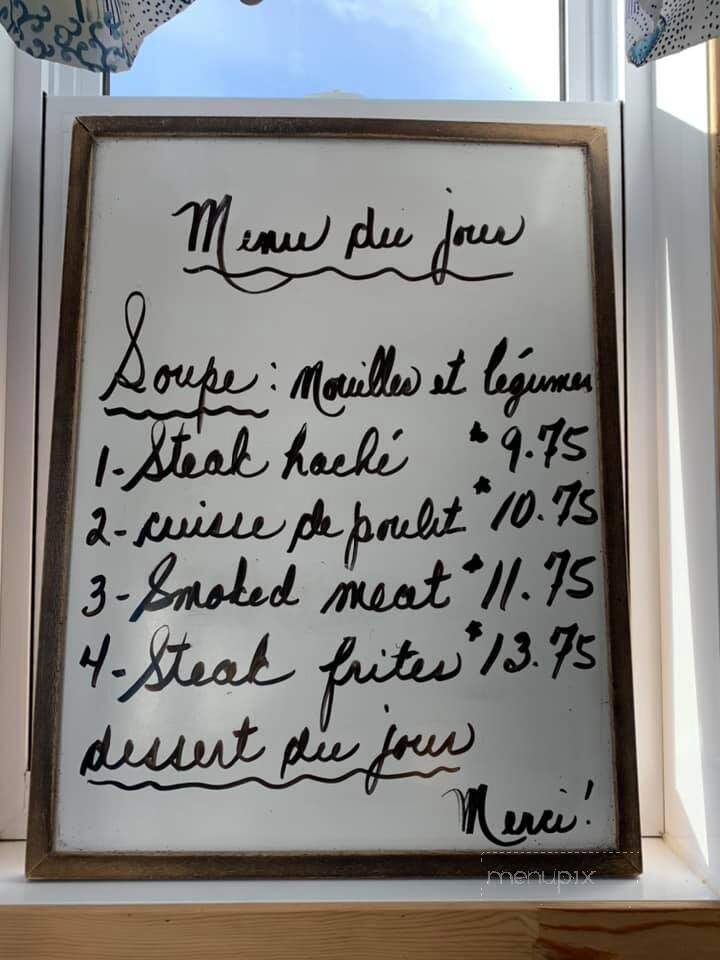 Menu du jour
Soupe : Nouilles et légumes
1- Steak haché * 9.75
2- cuisse de poulet * 10.75
3- Smoked meat * 11.75
4- Steak frites * 13.75
dessert du jour
Merci!
menupix